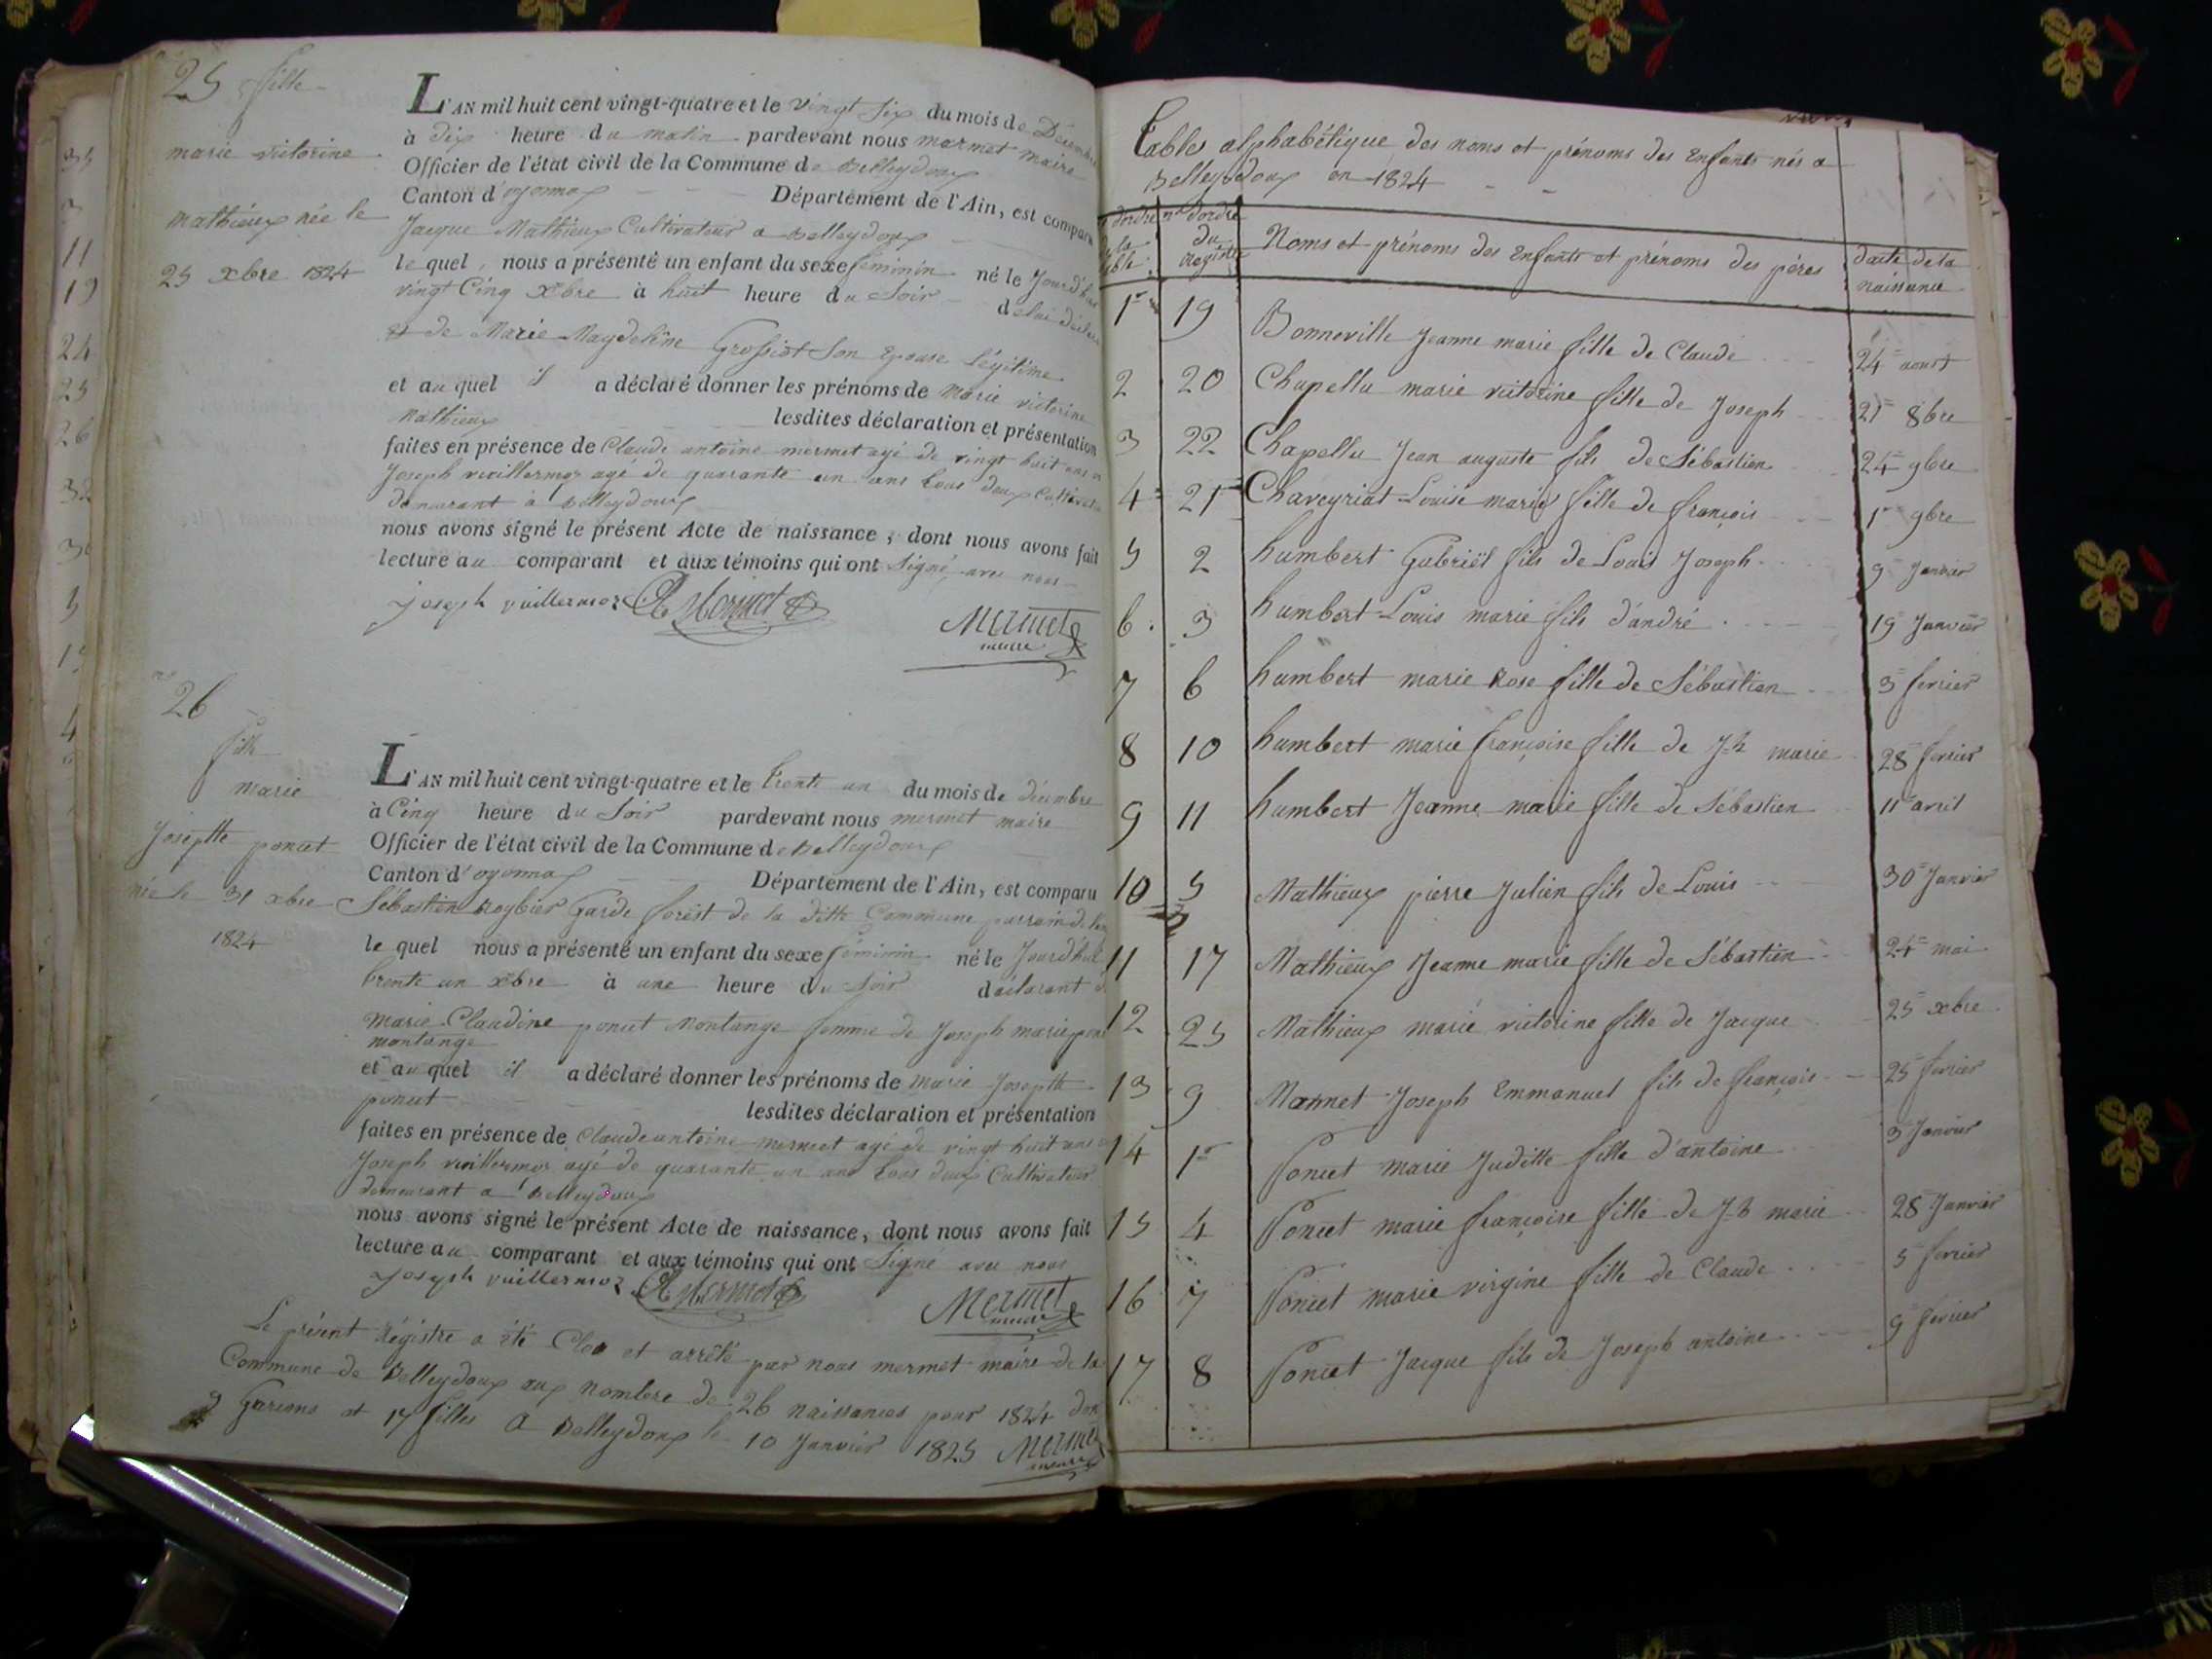 25 fille
marie victorine
mathieux née le
25 xbre 1824
L'AN mil huit cent vingt-quatre et le vingt six du mois de Décembre
à dix heure du matin pardevant nous mermet maire
Officier de l'état civil de la Commune de Belleydoux
Canton d'oyonnax Département de l'Ain, est comparu
Jacque Mathieux Cultivateur a Belleydoux
le quel, nous a présenté un enfant du sexe féminin né le Jourd'hui
vingt Cinq xbre à huit heure du Soir de lui déclarant
et de Marie Maydeleine Grossiot Son Epouse Légitime
et au quel il a déclaré donner les prénoms de Marie victorine
Mathieux lesdites déclaration et présentation
faites en présence de Claude antoine mermet agé de vingt huit ans
Joseph vuillermoz agé de quarante un ans tous deux Cultivateur
demeurant à Belleydoux
nous avons signé le présent Acte de naissance, dont nous avons fait
lecture au comparant et aux témoins qui ont Signé avec nous
Joseph vuillermoz Mermet Mermet
maire
26
fille
marie
Josephte poncet
née le 31 xbre
1824
L'AN mil huit cent vingt-quatre et le trente un du mois de décembre
à Cinq heure du Soir pardevant nous mermet maire
Officier de l'état civil de la Commune de Belleydoux
Canton d'oyonnax Département de l'Ain, est comparu
Sébastien Garde forêt de la ditte Commune
le quel nous a présenté un enfant du sexe féminin né le Jourd'hui
trente un xbre à une heure du Soir déclarant
Marie Claudine poncet Montange femme de Joseph marie
montange
et au quel il a déclaré donner les prénoms de Marie Josephte
poncet lesdites déclaration et présentation
faites en présence de Claude antoine mermet agé de vingt huit ans
Joseph vuillermoz agé de quarante un ans tous deux Cultivateur
demeurant a Belleydoux
nous avons signé le présent Acte de naissance, dont nous avons fait
lecture au comparant et aux témoins qui ont Signé avec nous
Joseph vuillermoz Mermet Mermet
maire
Le présent Régistre a été Clos et arrêté par nous mermet maire de la
Commune de Belleydoux aux nombre de 26 naissances pour 1824 dont
9 Garsons et 17 filles a Belleydoux le 10 Janvier 1825 Mermet
maire
Table alphabétique des noms et prénoms des Enfants nés a
Belleydoux en 1824
d'ordre de la table nº d'ordre du registre Noms et prénoms des Enfants et prénoms des péres date de la naissance
1r 19 Bonneville Jeanne marie fille de Claude 24 aoust
2 20 Chapellu marie victorine fille de Joseph 21 8bre
3 22 Chapellu Jean auguste fils de Sébastien 24 9bre
4 21 Chaveyriat Louise marie fille de françois 1r 9bre
5 2 humbert Gabriël fils de Louis Joseph 9 Janvier
6 3 humbert Louis marie fils d'andré 19 Janvier
7 6 humbert marie Rose fille de Sébastien 3 fevrier
8 10 humbert marie françoise fille de Jh marie 28 fevrier
9 11 humbert Jeanne marie fille de Sébastien 11 avril
10 5 Mathieux pierre Julien fils de Louis 30 Janvier
11 17 Mathieux Jeanne marie fille de Sébastien 24 mai
12 25 Mathieux marie victorine fille de Jacque 25 xbre
13 9 Mermet Joseph Emmanuel fils de françois 25 fevrier
14 1r Poncet marie Juditte fille d'antoine 3 Janvier
15 4 Poncet marie françoise fille de Jh marie 28 Janvier
16 7 Poncet marie virgine fille de Claude 5 fevrier
17 8 Poncet Jacque fils de Joseph antoine 9 fevrier